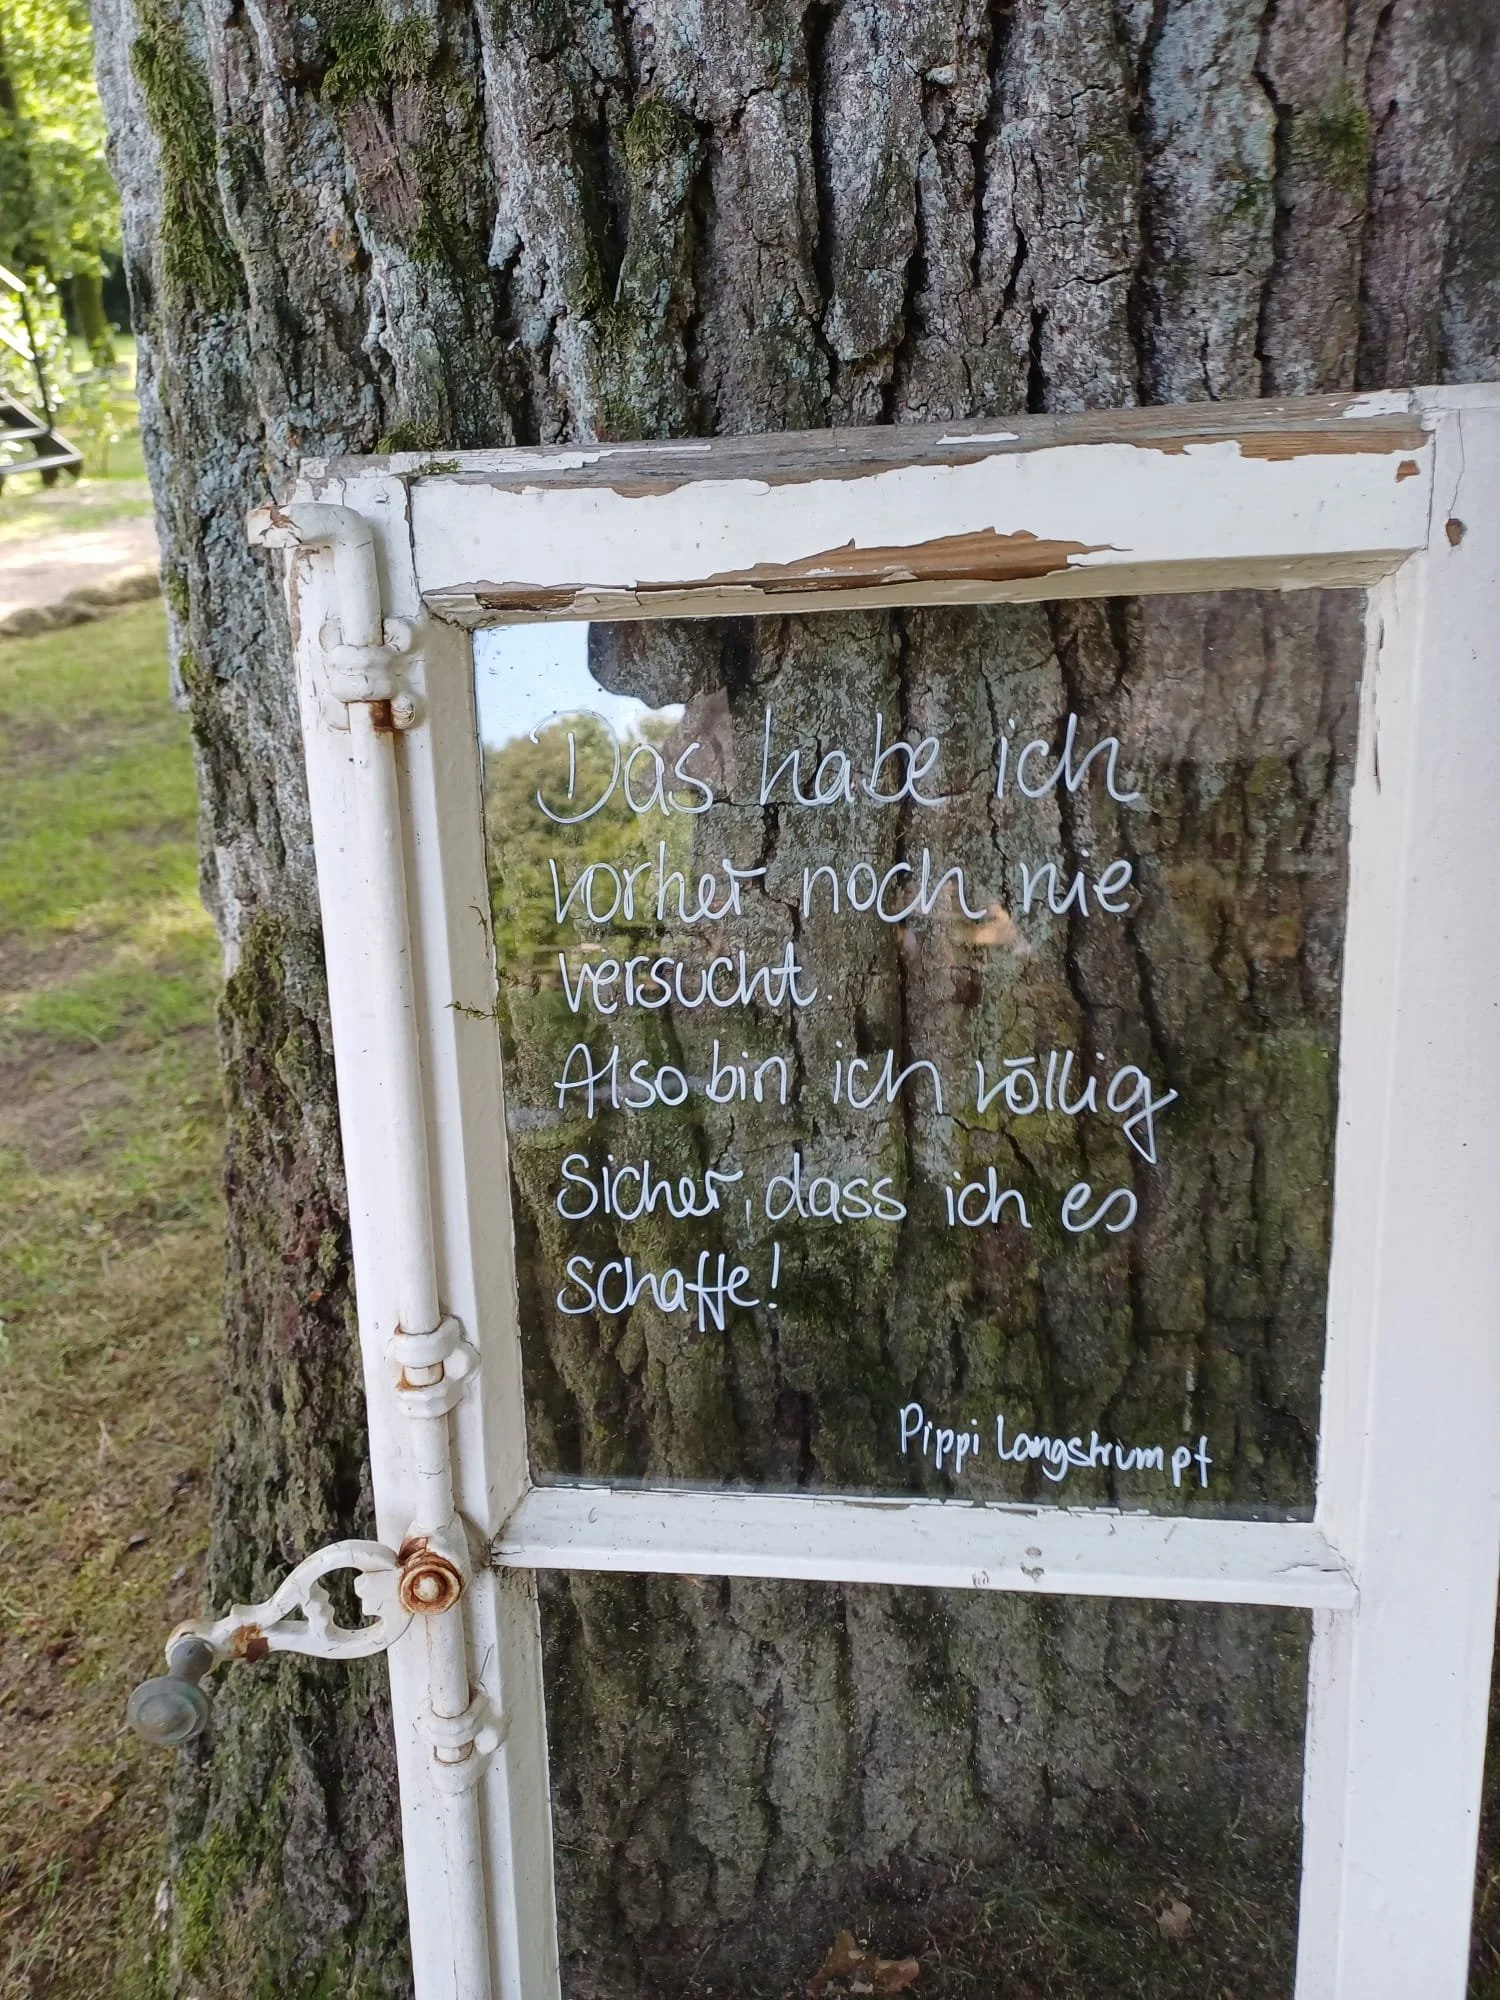 Das habe ich
vorher noch nie
versucht.
Also bin ich völlig
sicher, dass ich es
schaffe!
Pippi Langstrumpf